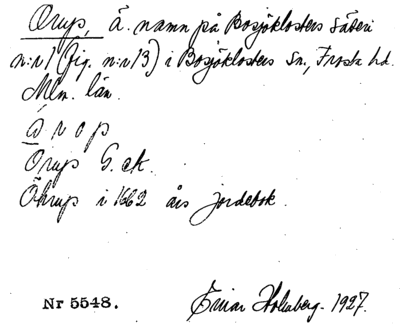 Örup, ä. namn på Bosjöklosters säteri
n:r 1 (fig. n:r 13) i Bosjöklosters sn., Frosta hd.
Mlm. län.
ørop
Örup G. ek.
Öhrup i 1662 års jordebok.
Nr 5548. Einar Holmberg. 1927.